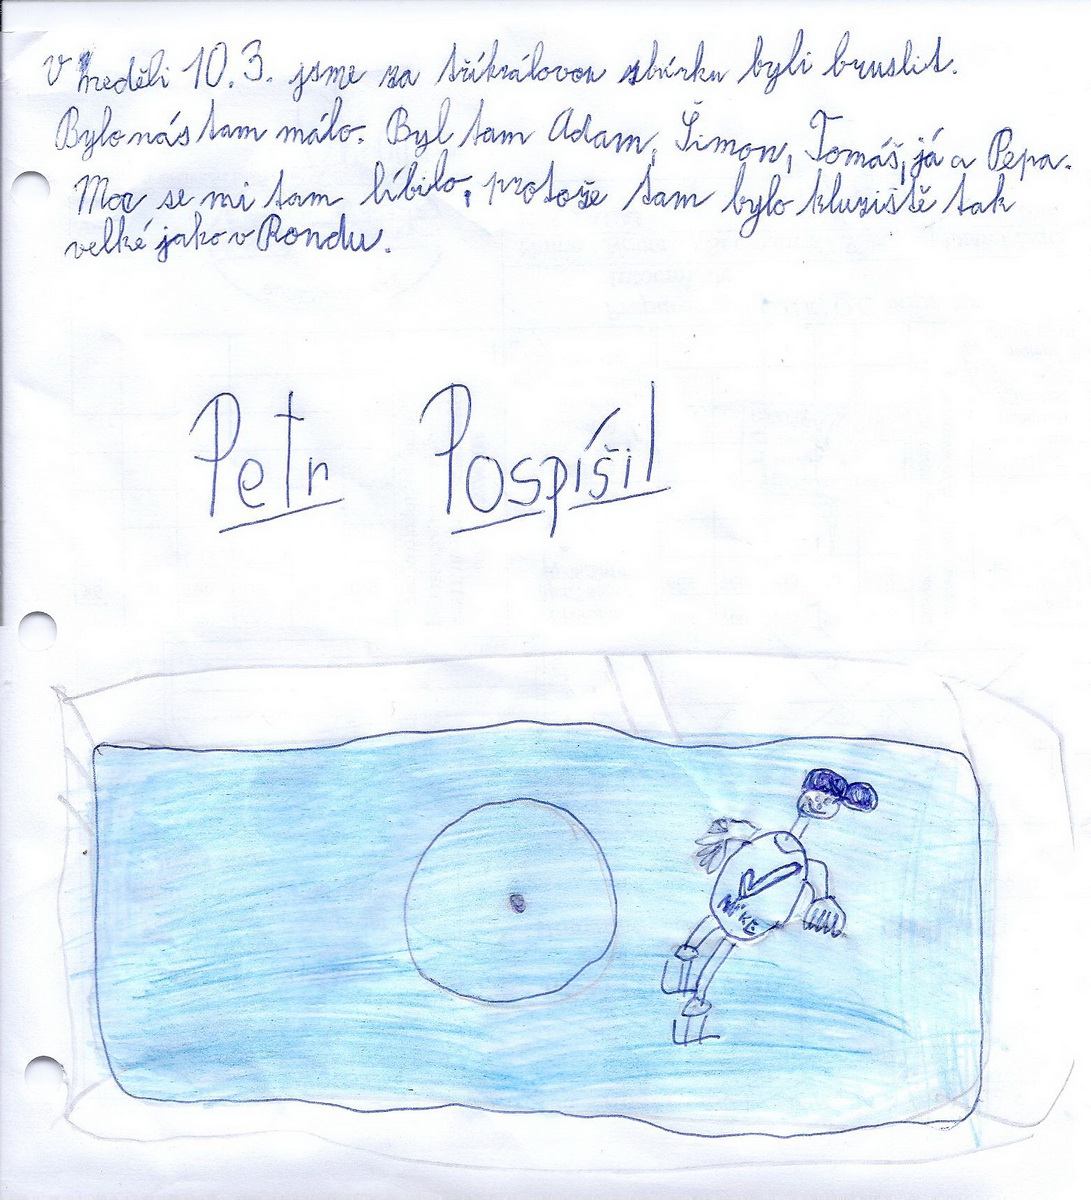 V neděli 10.3. jsme za tříkrálovou sbírku byli bruslit.
Bylo nás tam málo. Byl tam Adam, Šimon, Tomáš, já a Pepa.
Moc se mi tam líbilo, protože tam bylo kluziště tak
velké jako v Rondu.
Petr Pospíšil
NIKE